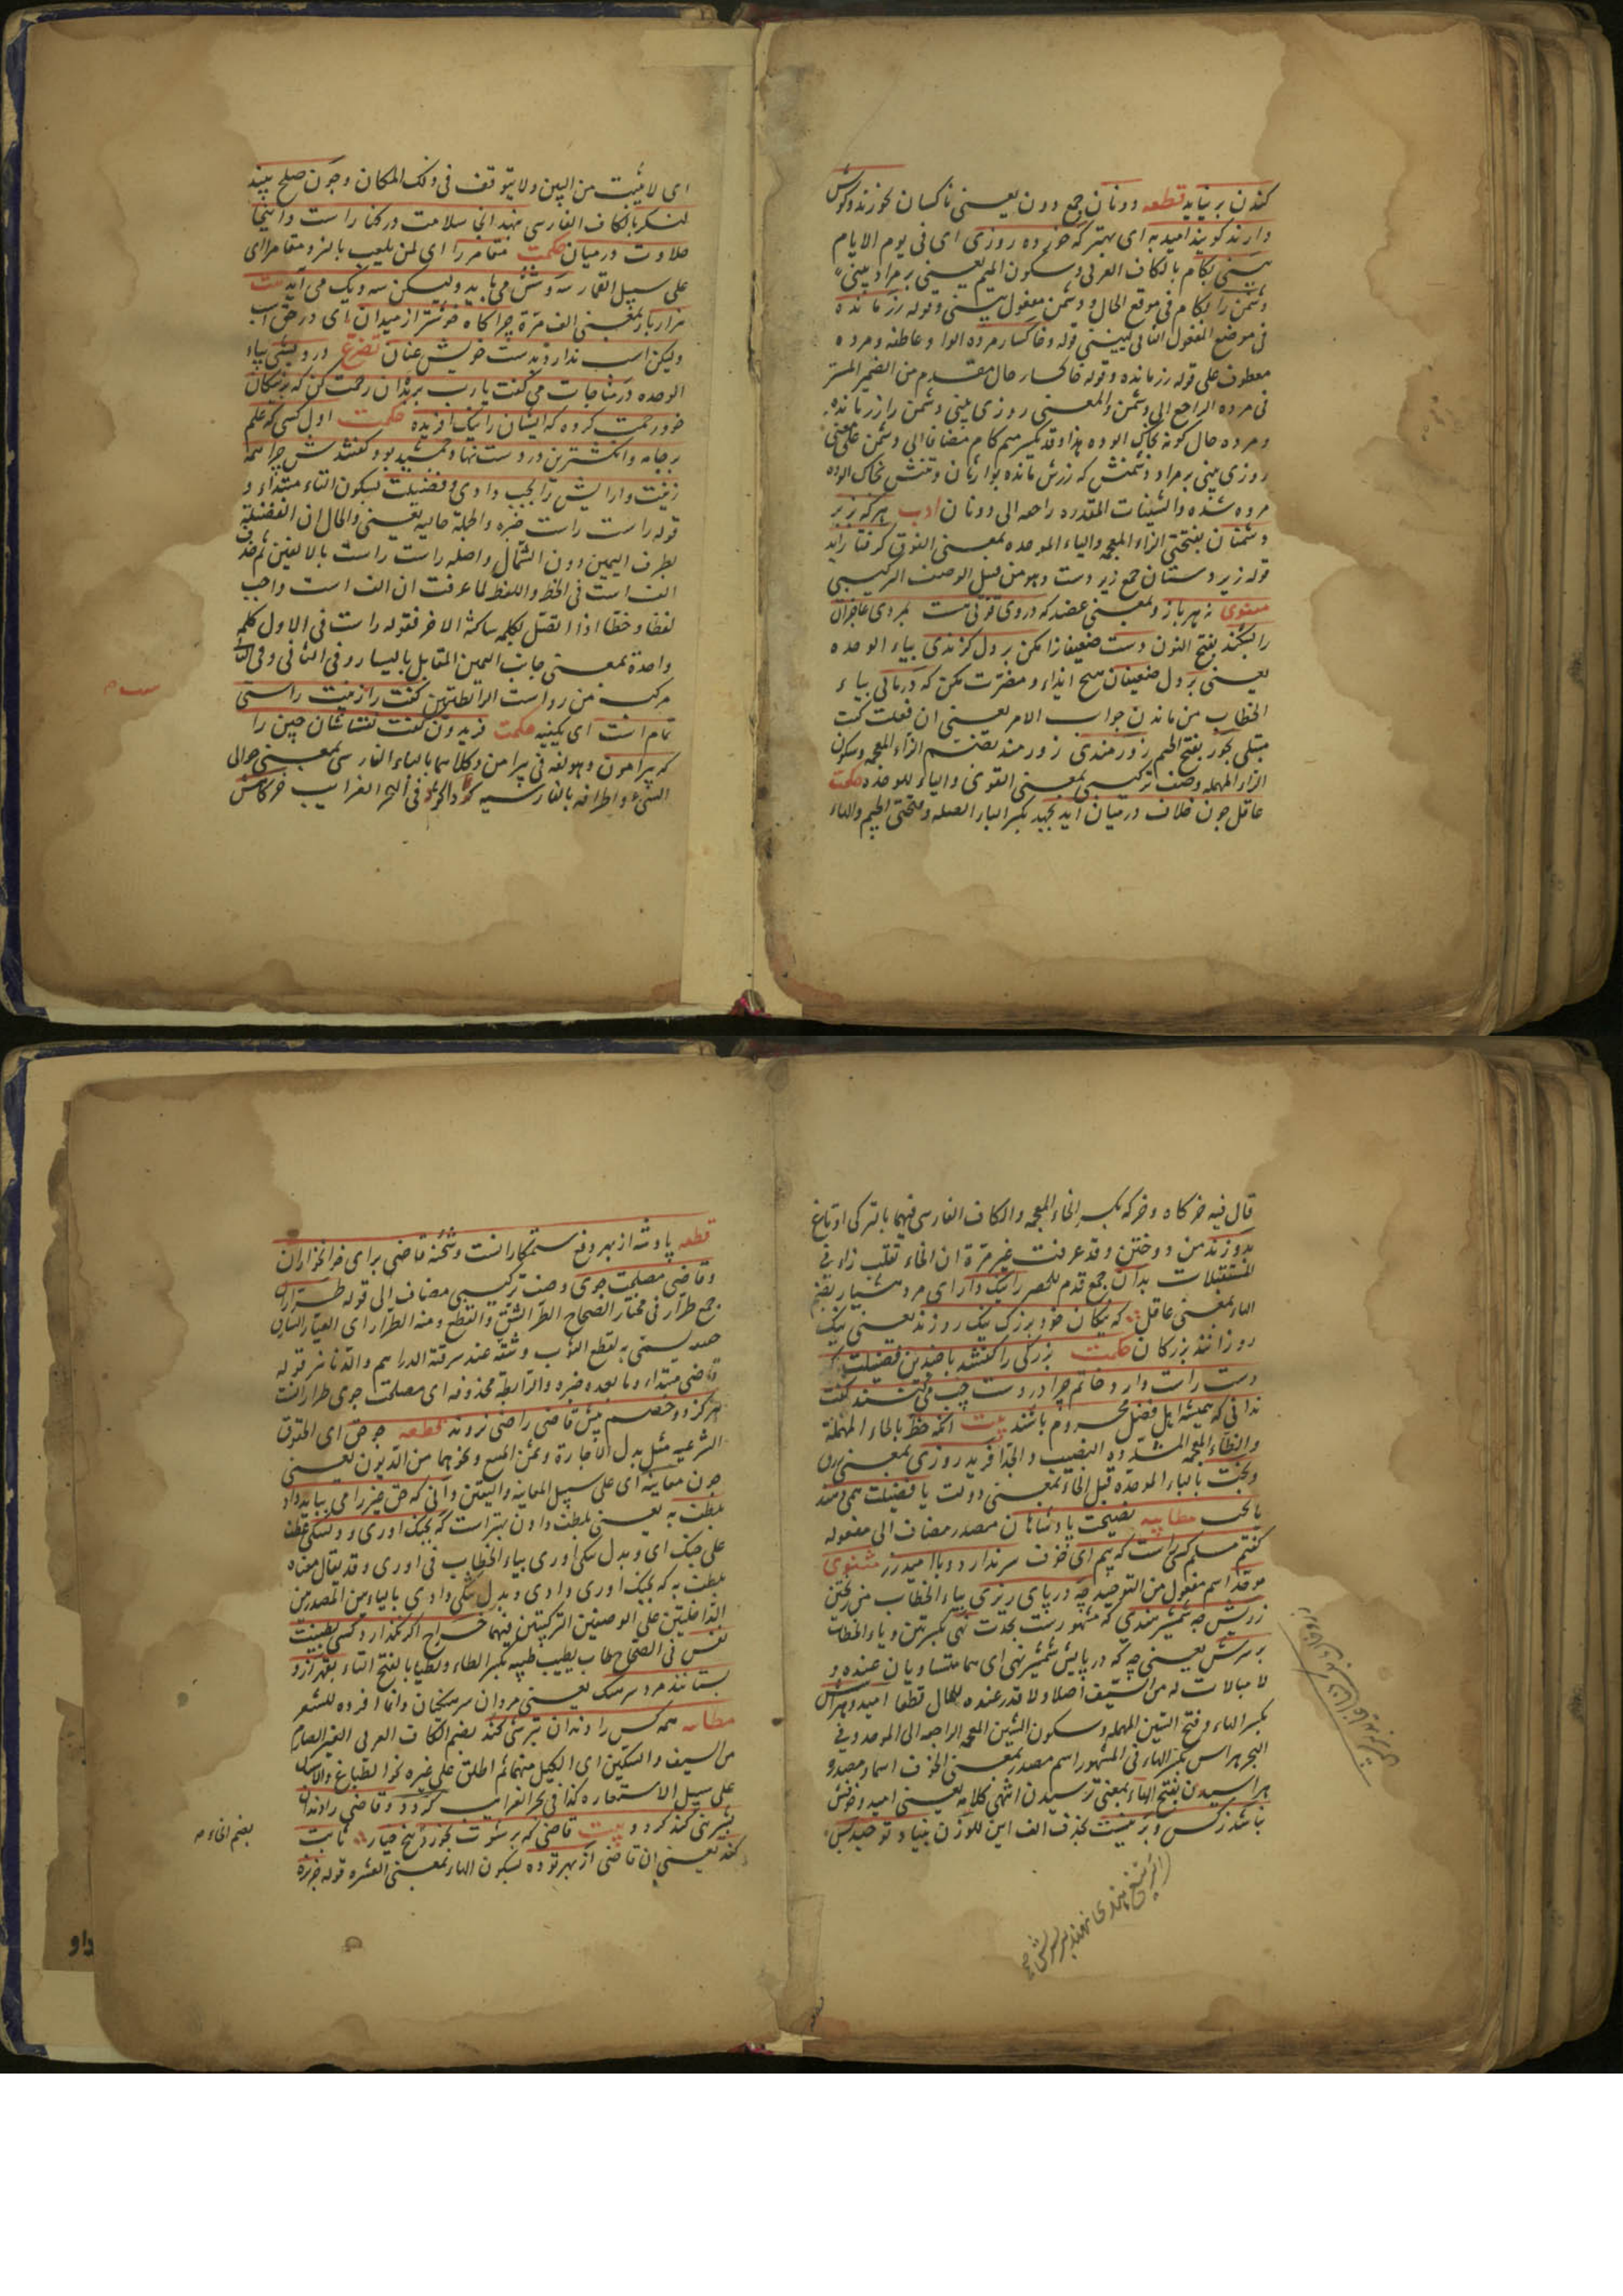 كندن بر نیاید قطعه دونان جمع دون یعنی ناکسان نخورند وکوش
دارند کویند امید به ای بهتر که خورده روزی ای فی یوم الایام
بینی بکام بالکاف العربی وسکون المیم یعنی بر مراد بینی
دشمن را بکام فی موقع الحال ودشمن مفعول بینی وقوله زر مانده
فی موضع المفعول الثانی لبینی قوله وخاکسار مرده الواو عاطفه ومرده
معطوف علی قوله زر مانده وقوله خاکسار حال مقدم من الضمیر المستتر
فی مرده الراجع الی دشمن والمعنی روزی بینی دشمن را زر مانده
ومرده حال کونه بخاک الوده هذا وقد یکسر میم کام مضافا الی دشمن علی معنی
روزی بینی بر مراد دشمنش که زرش مانده بوارثان وتنش بخاک الوده
مرده شده والشینات المقدره راجعه الی دونان ادب هرکه بر زبر
دستان بفتحتی الزاء المعجمه والباء الموحده بمعنی الفوق گرفتار آید
قوله زیر دستان جمع زیر دست وهو من قبیل الوصف الترکیبی
مثنوی نه هر بازو بمعنی عضد که دروی قوتی هست بمردی عاجزان
را بشکند بفتح النون دست ضعیفانرا مکن بر دل کزندی بیاء الوحده
یعنی بر دل ضعیفان هیچ ایذاء ومضرت مکن که درمانی بیاء
الخطاب من ماندن جواب الامر یعنی ان فعلت کنت
مبتلی بجور بفتح الجیم زورمندی زورمند بضم الزاء المعجمه وسکون
الراء المهمله وصف ترکیبی بمعنی القوی والیاء للوحده حکمت
عاقل چون خلاف درمیان آید بجهد بکسر الباء الصله وفتحتی الجیم والهاء
ای لا یثبت من البین ولا یتوقف فی ذلک المکان وچون صلح بیند
لنکر بالکاف الفارسی بنهد انجا سلامت در کنار است واینجا
حلاوت درمیان حکمت مقامر را ای لمن یلعب بالنرد مقامرا ای
علی سبیل القمار سه وشش می باید ولیکن سه ویک می آید بیت
هزار بار بمعنی الف مرة چراکاه خوشتر از میدان ای در حق اسب
ولیکن اسب ندارد بدست خویش عنان تضرع درویشی بیاء
الوحده در مناجات می کفت یا رب بر بدان رحمت کن که بر نیکان
خود رحمت کرده که ایشان را نیک افریده حکمت اول کسی که علم
بر جامه وانکشترین در دست نهاد جمشید بود کفتندش چرا همه
زینت وارایش را بچپ دادی وفضیلت بسکون التاء مبتداء و
قوله راست راست خبره والجملة حالیه یعنی والحال ان الفضیلة
بطرف الیمین دون الشمال واصله راست راست بالالفین ثم حذف
الف است فی الخط واللفظ لما عرفت ان الف است واجب
لفظا وخطا اذا اتصل بکلمه ساکنة الاخر فقوله راست فی الاول کلمه
واحدة بمعنی جانب الیمین المقابل بالیسار وفی الثانی وفی الثا
مرکب من را واست الرابطه کفت راست را زینت راستی
تمام است ای یکفیه حکمت فریدون کفت نقاشان چین را
که پیرامون وهو لغه فی پیرامن وکلاهما بالباء الفارسی بمعنی حوالی
الشیء واطرافه بالفارسیه کرد فی البحر الغرایب خرکاهش
قال فیه خرکاه وخرکه بکسر الخاء المعجمه والکاف الفارسی فیهما بالترکی اوتاغ
بدوزند من دوختن وقد عرفت غیر مرة ان الخاء تقلب زاء فی
المستقبلات بدان جمع قدم للحصر را نیک دار ای مرد هشیار بضم
الهاء بمعنی عاقل که نیکان خود بزرک نیک روزند یعنی نیک
روز انند بزرکان حکمت بزرکی را کفتند با چندین فضیلت
دست راست دارد خاتم چرا در دست چپ می کنند کفت
ندانی که همیشه اهل فضل محروم باشند بیت انکه حظ بالحاء المهملة
والظاء المعجمه المشددة النصیب والجد افرید روزی بمعنی رزق
وبخت بالباء الموحده قبل الخاء بمعنی دولت یا فضیلت همی دهد
یا بخت مطایبه نصیحت پادشاهان مصدر مضاف الی مفعوله
کفتن مسلم کسی راست که بیم ای خوف سر ندارد ویا امید زر مثنوی
موحد اسم مفعول من التوحید چه در پای ریزی بیاء الخطاب من ریختن
زرش چه شمشیر هندی که مشهور است بحدت نهی بکسرتین ویاء الخطاب
بر سرش یعنی چه که در پایش شمشیر نهی ای هما متساویان عنده و
لا مبالات له من السیف اصلا ولا قدر عنده للمال قطعا امید وهراس
بکسر الهاء وفتح السین المهمله وسکون الشین المعجمه الراجعه الی الموحد وفی
البحر هراس بکسر الهاء فی المشهور اسم مصدر بمعنی الخوف اسماء مصدر و
هراسیدن بفتح الهاء بمعنی ترسیدن انتهی کلامه یعنی امید وخوفش
نباشد ز کس وبرینست بحذف الف این للوزن بنیاد توحید بس
قطعه پادشه از بهر دفع ستمکارانست وشحنه قاضی برای خونخواران
وقاضی مصلحت جوی وصف ترکیبی مضاف الی قوله طرّاران
جمع طرار فی مختار الصحاح الطر الشق والقطع ومنه الطرار ای العیار
یسمی به لقطع الثوب وشقه عند سرقة الدراهم والدنانیر قوله
قاضی مبتداء وما بعده خبره والرابطه محذوفه ای مصلحت جوی طرارانست
هرکز دو خصم پیش قاضی راضی نروند قطعه چو حق ای الحقوق
الشرعیه مثل بدل الاجارة وثمن المبیع ونحوهما من الدیون یعنی
چون معاینه ای علی سبیل المعاینه والیقین دانی که حق غیر را می بباید داد
بلطف به یعنی بلطف دادن بهتر است که بجنک اوری ودلتنکی عطف
علی جنک ای وبدلتنکی اوری بیاء الخطاب فی اوری وقد یقال معناه
بلطف به که بجنک اوری دادی وبدلتنکی دادی بالیاء من المصدر من
الداخلتین علی الوصفین الترکیبین فیهما خراج اکر نکذارد کسی بطیبت
نفس فی الصحاح طاب یطیب طیبه بکسر الطاء وتطیابا بفتح التاء بقهر از و
بستانند مزد سرهنک یعنی مردان سرهنکان وانما افرده للشعر
مطایبه همه کس را دندان بترشی کند بضم الکاف العربی الغیر الصارم
من السیف والسکین ای الکلیل منهما ثم اطلق علی غیره نحو الطباع والاسنان
علی سبیل الاستعاره کذا فی بحر الغرایب کردد وقاضی را دندان
بشیرینی کند کردد بیت قاضی که برشوت بخورد پنج خیار ثابت
کند یعنی ان قاضی از بهر تو ده بسکون الهاء بمعنی العشره قوله خربزه
بضم الخاء م